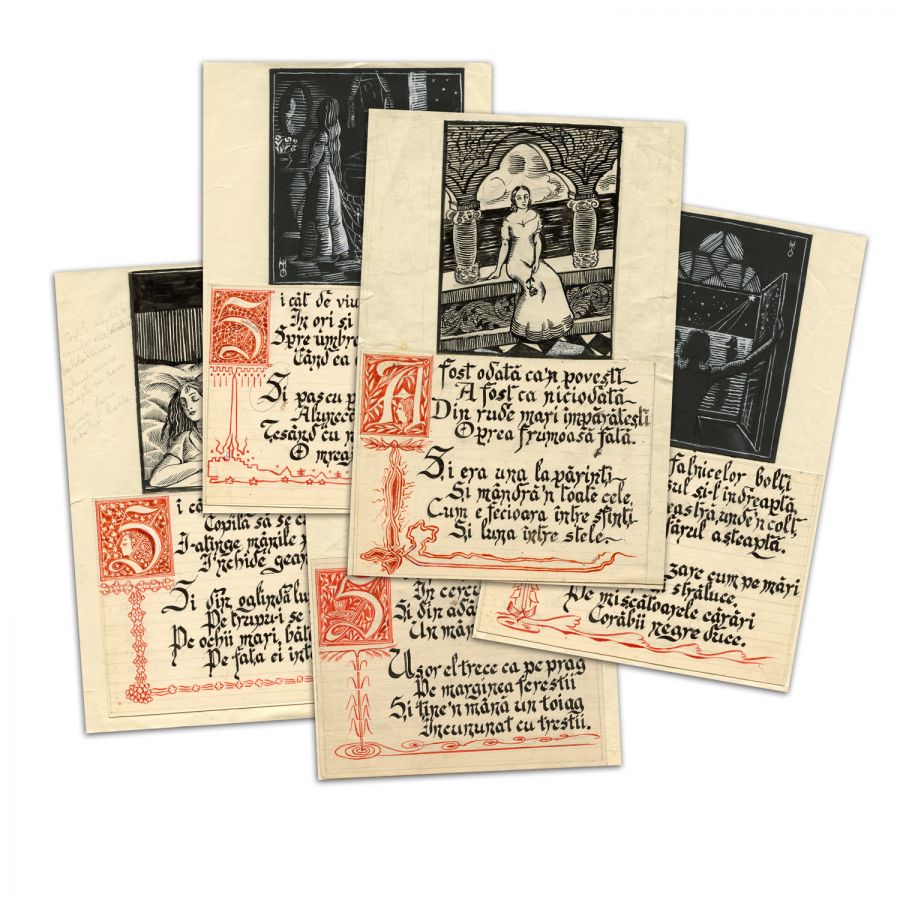 Și cât de viu
În ori și
Spre umbre
Când ea
Și pas cu p
Alunec
Țesând cu
O mreaj
A fost odată ca'n povești
A fost ca niciodată
Din rude mari împărătești
O prea frumoasă fată.
Și era una la părinți
Și mândră'n toate cele,
Cum e fecioara între sfinți
Și luna între stele.
falnicelor bolți
sul și-l îndreaptă
eastră, unde'n colț
fărul așteaptă.
zare cum pe mări
străluce.
Pe mișcătoarele cărări
Corăbii negre duce.
Și câ
Copila să se c
I-atinge mânile p
I'nchide gean
Și din oglindă lu
Pe trupu-i se
Pe ochii mari, băt
Pe fața ei înt
În cerc
Și din adâ
Un mân
Ușor el trece ca pe prag
Pe marginea ferestii
Și ține'n mâna un toiag
Încununat cu trestii.